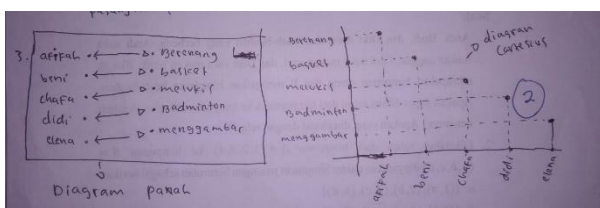 3. afipah Berenang
beni basket
chafa melukis
didi Badminton
elena menggambar
Diagram panah
Berenang
basket
melukis
Badminton
menggambar
diagram
cartesius
2
afipah
beni
chafa
didi
elena